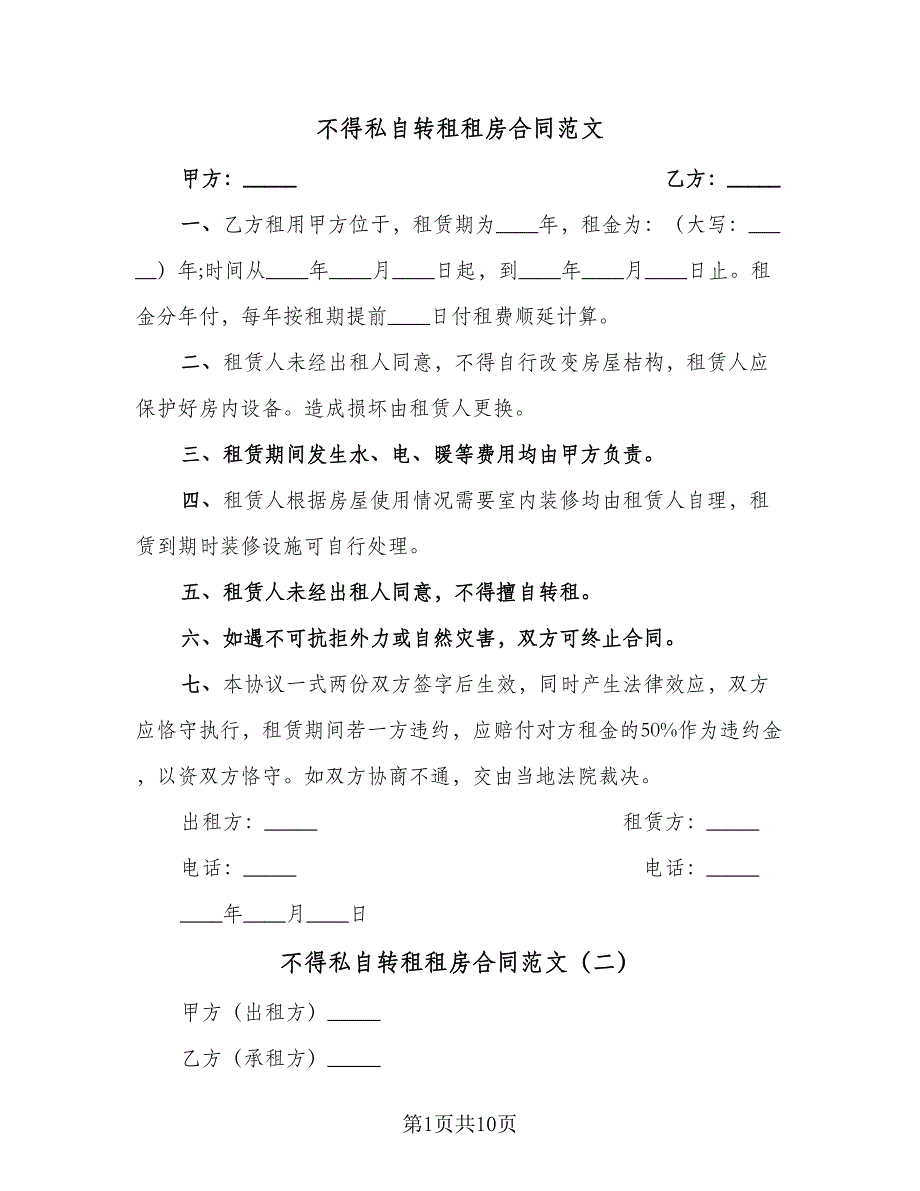 不得私自转租租房合同范文
甲方：_____ 乙方：_____
一、乙方租用甲方位于，租赁期为____年，租金为：（大写：___
__）年;时间从____年____月____日起，到____年____月____日止。租
金分年付，每年按租期提前____日付租费顺延计算。
二、租赁人未经出租人同意，不得自行改变房屋桔构，租赁人应
保护好房内设备。造成损坏由租赁人更换。
三、租赁期间发生水、电、暖等费用均由甲方负责。
四、租赁人根据房屋使用情况需要室内装修均由租赁人自理，租
赁到期时装修设施可自行处理。
五、租赁人未经出租人同意，不得擅自转租。
六、如遇不可抗拒外力或自然灾害，双方可终止合同。
七、本协议一式两份双方签字后生效，同时产生法律效应，双方
应恪守执行，租赁期间若一方违约，应赔付对方租金的50%作为违约金
，以资双方恪守。如双方协商不通，交由当地法院裁决。
出租方：_____ 租赁方：_____
电话：_____ 电话：_____
____年____月____日
不得私自转租租房合同范文（二）
甲方（出租方）_____
乙方（承租方）_____
第1页共10页